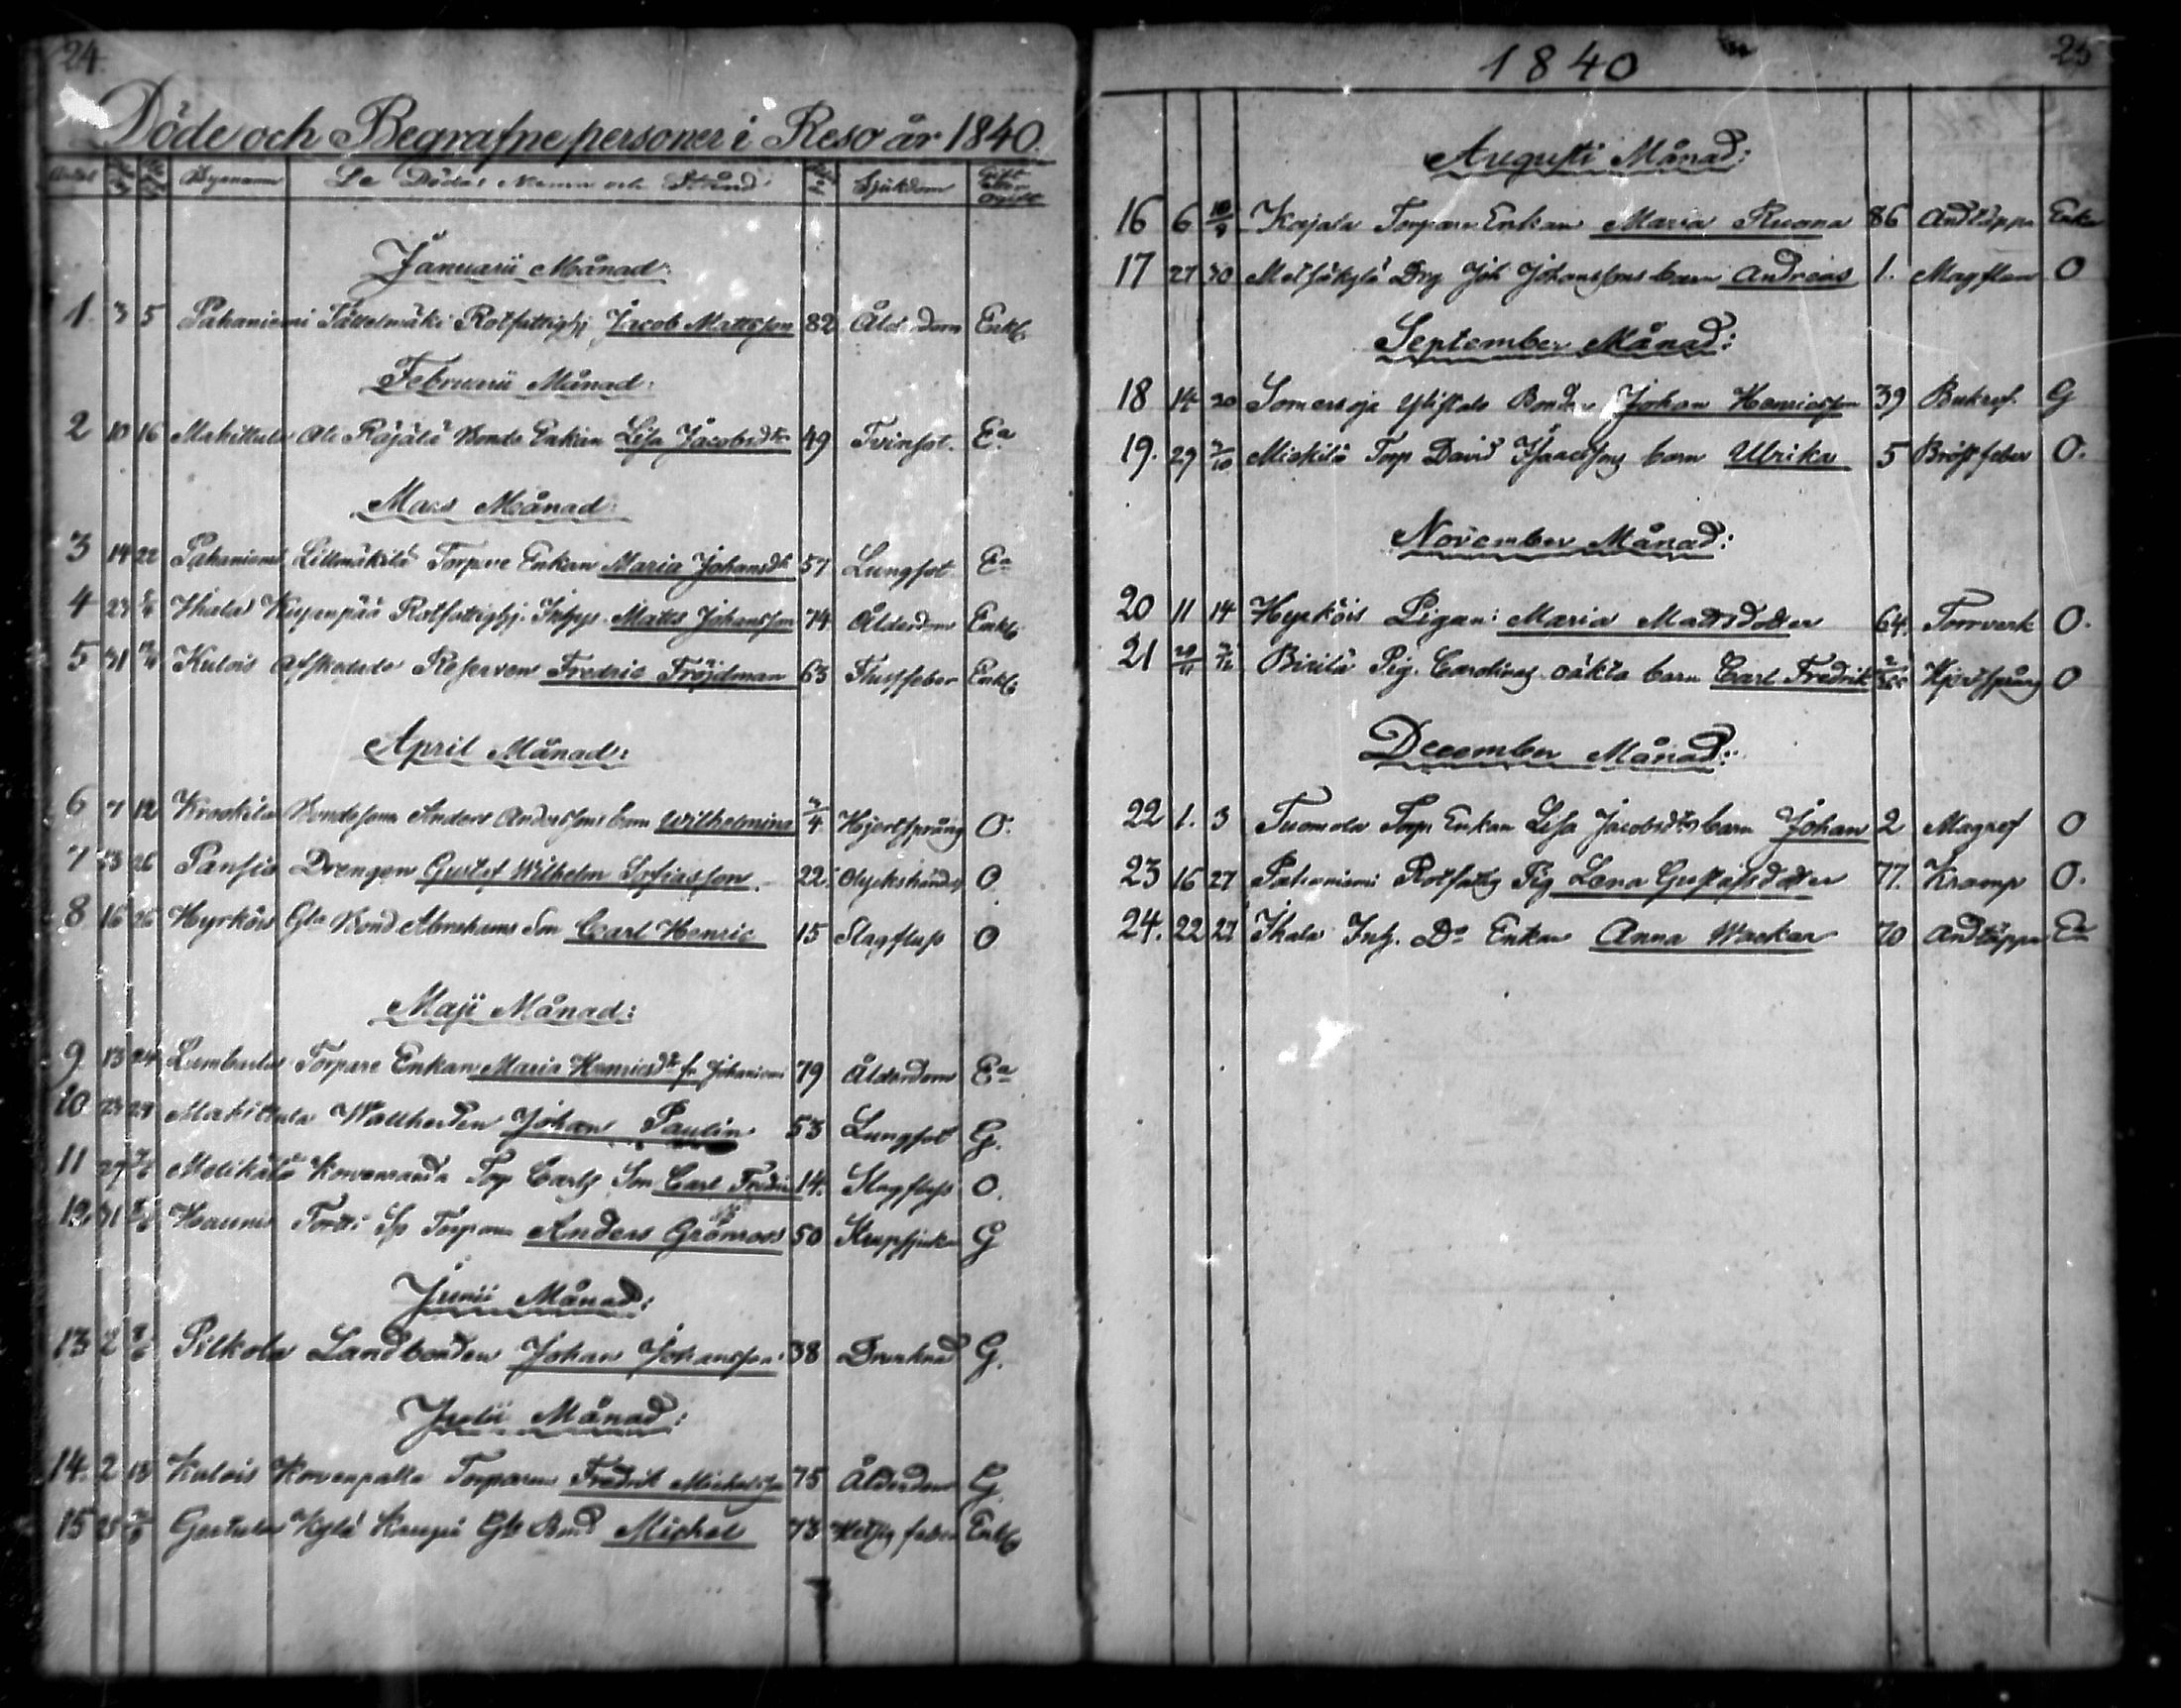 24.
Döde och Begrafne personer i Reso år 1840.
Bynamn De Dödas Namn och Stånd Sjukdom Gift eller ogift
Januarii Månad:
1. 3 5 Pahaniemi Rotfattighj Jacob Mattsson 82 Ålderdom Enkl
Februarii Månad:
2 10 16 Mahittula Ali Räjälä Bonde Enkan Lisa Jacobsdtr 49 Tvinsot. Ea
Mars Månad:
3 14 22 Pahaniemi Lillmäkilä Torpare Enkan Maria Johansdr 57 Lungsot Ea
4 23 Ihala Kujanpää Rotfattighj. Inhys. Matts Johansson 74 Ålderdom Enkl
5 31 Kulois Afskedade Reserven Fredric Fröjdman 63 Flussfeber Enkl
April Månad:
6 7 12 Krookila Bondesons Anders Anderssons barn Wilhelmina 3/4 Hjertsprång O.
7 13 26 Pansio Drengen Gustef Wilhelm Sefiasson 22 Olyckshändelse O
8 16 26 Hyrköis Gla Bond Abrahams Son Carl Henric 15 Slagfluss O
Maji Månad:
9 13 24 Lumbula Torpare Enkan Maria Henricsdr fr Johaniemi 79 Ålderdom Ea
10 23 28 Mahittula Wallherden Johan Paulin 53 Lungsot G.
11 27 Torp Carls Son Carl Fredric 14. Slagfluss O.
12. 31 Haunis Tortti Sp Torparen Anders Grönroos 50 Strupsjuka G
Junii Månad:
13 2 8/6 Pilkola Landbonden Johan Johansson 38 Drunknad G.
Julii Månad:
14. 2 18 Kulois Korvenpalla Torparen Fredrik Michelsson 75 Ålderdom G.
15 28 2/8 Gustula Kylä Kaupi Gla Bond Michel 73 Hetsig feber Enkl
1840
25
Augusti Månad:
16 6 10/9 Kajala Torpare Enkan Maria Ruona 86 Andtäppa Enka
17 27 30 Metsäkylä Drg Joh Johanssons barn Andreas 1. Magflen O
September Månad:
18 14 20 Somersoja Ylistalo Bonden Johan Henricsson 39 Bukref. G
19. 29 4/10 Miekilä Torp David Isaacssons barn Ulrika 5 Bröstfeber O.
November Månad:
20 11 14 Hyrköis Pigan: Maria Mattsdotter 64. Torrverk O.
21 29/11 Birilä Pig. Carolinas oäkta barn Carl Fredrik Hjertsprång O
December Månad:
22 1. 3 Tuomola Torp Enkan Lisa Jacobsdtrs barn Johan 2 Magref O
23 16 27 Pahaniemi Rotfattig Pig Lena Gustafsdotter 77. Kramp O.
24. 22 27 Ihala Inh. Do Enkan Anna Wacker 70 Andtäppa Ea